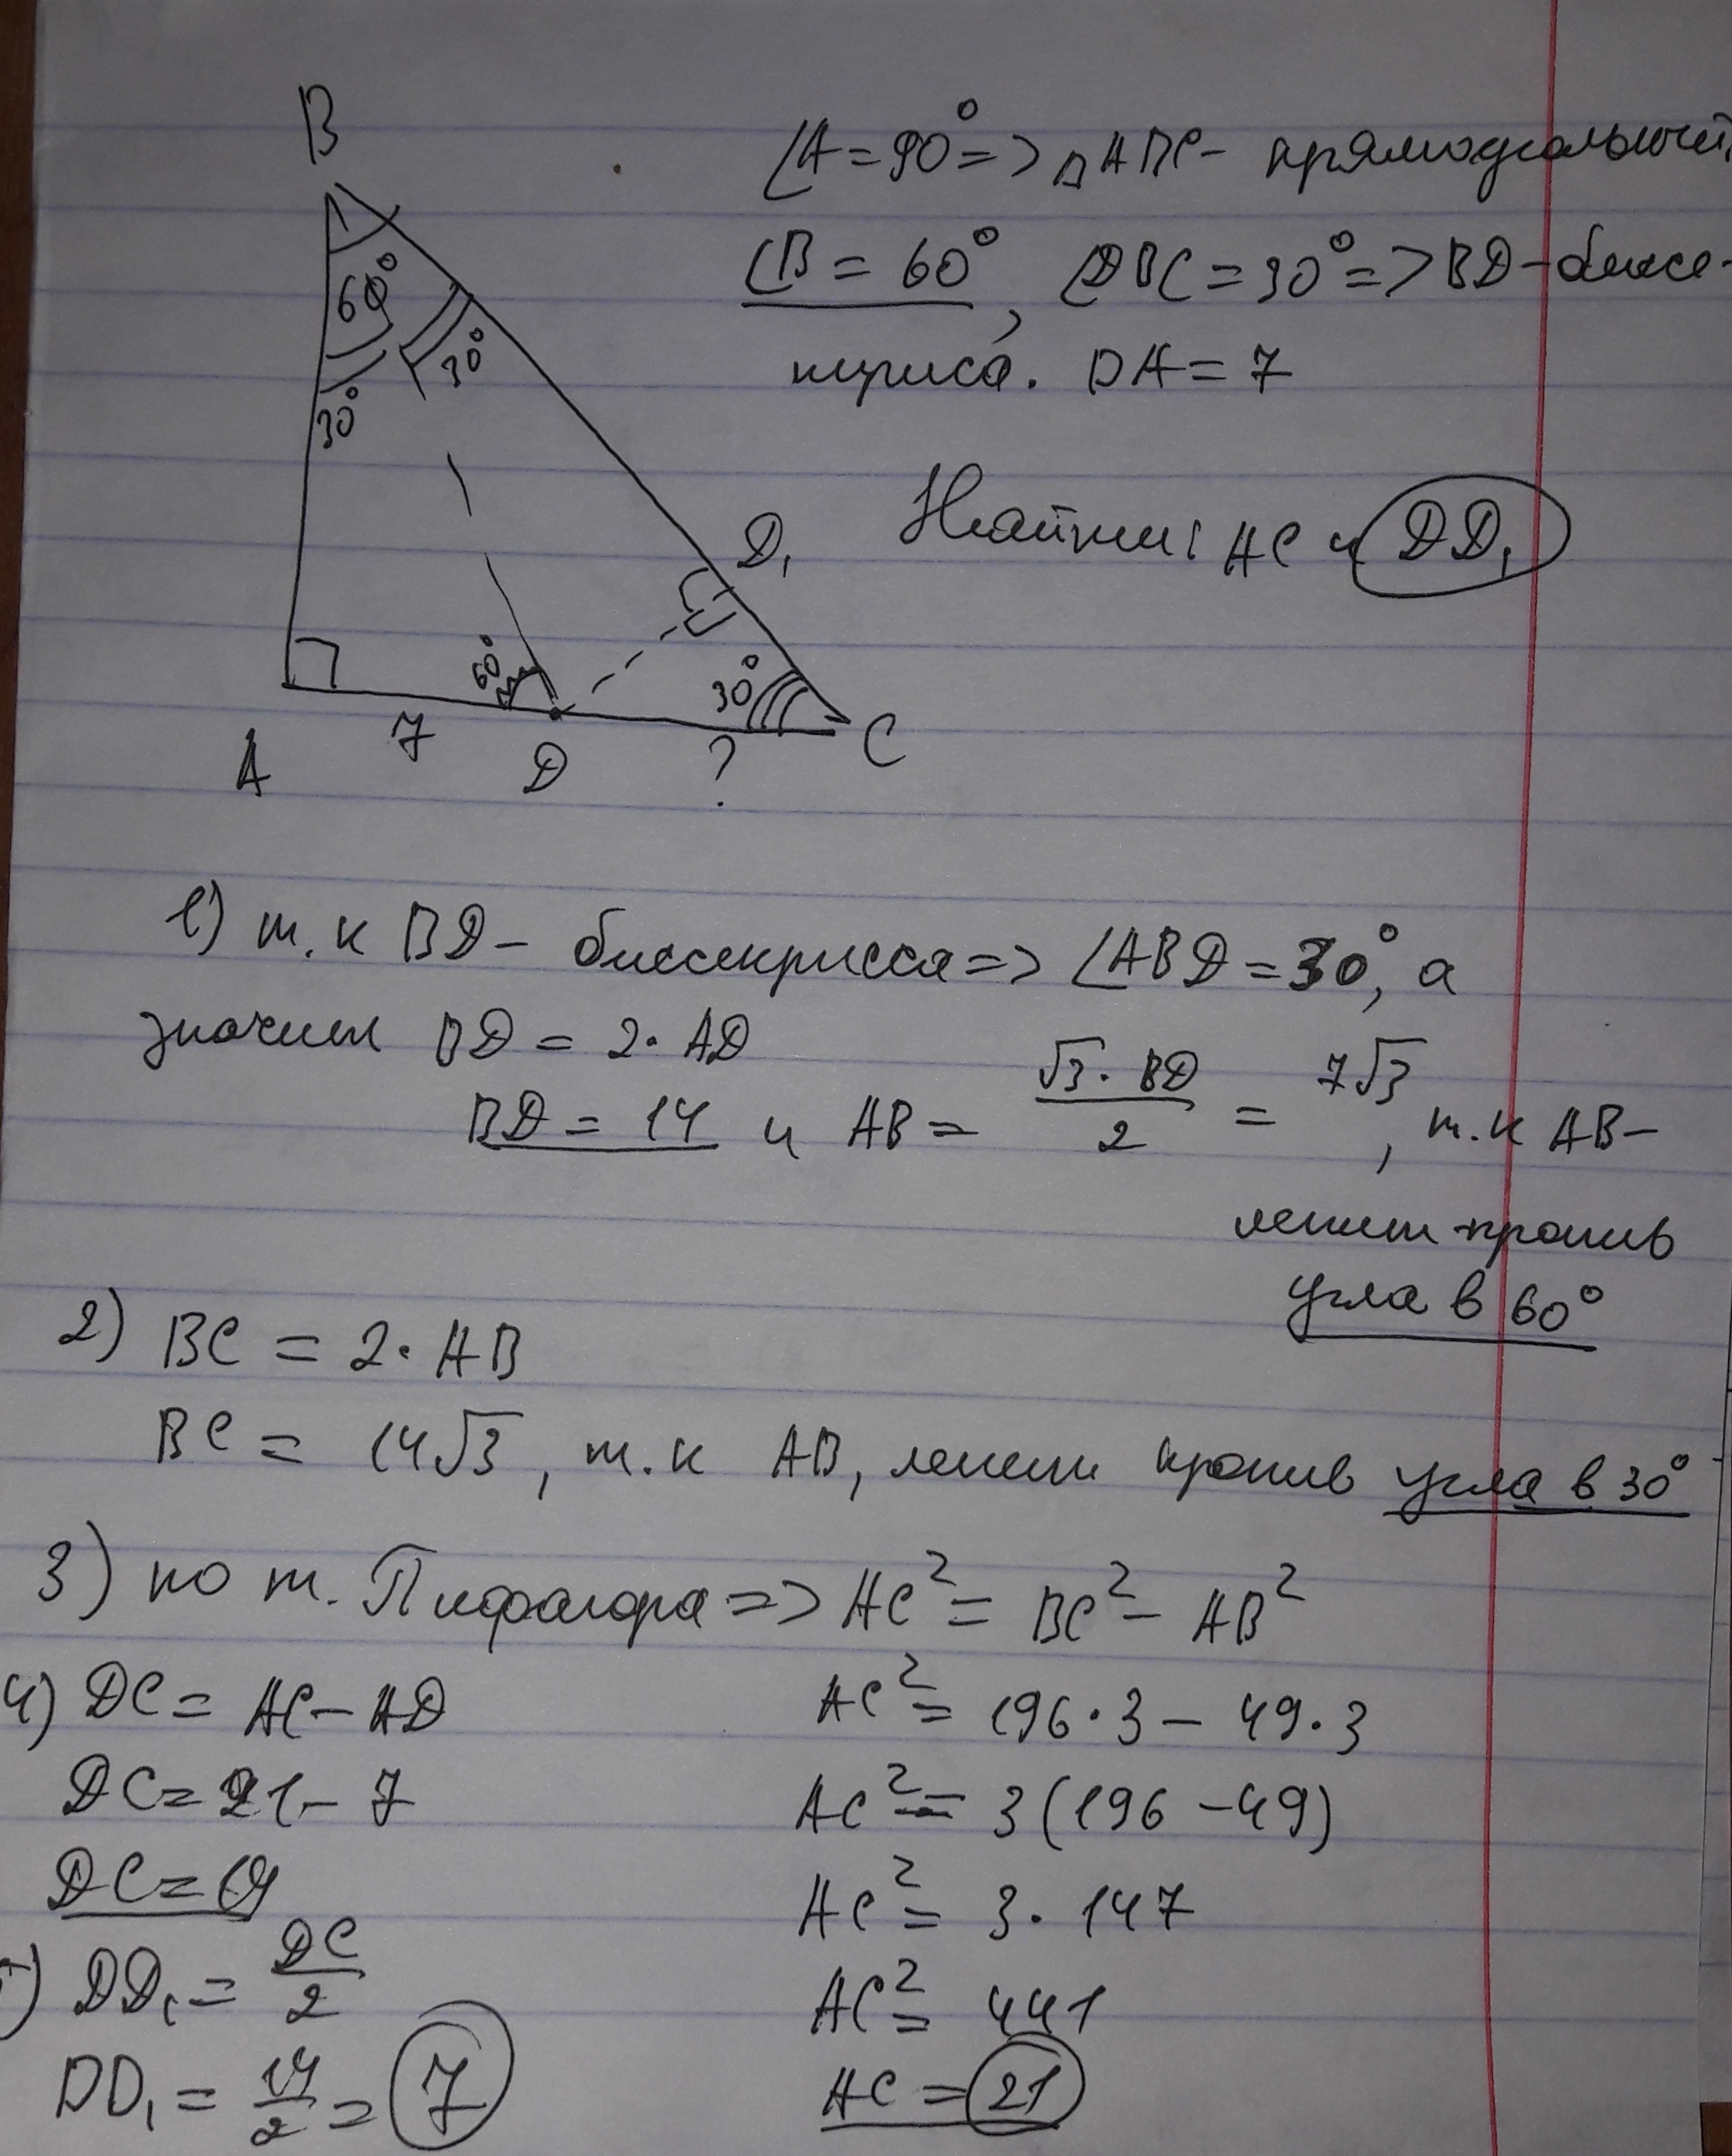 B
∠A = 90° => △ABC - прямоугольный,
∠B = 60°, ∠DBC = 30° => BD - биссе-
ктриса. DA = 7
60°
30°
30°
Найти: AC и DD₁
D₁
60°
30°
A
7
D
?
C
1) т.к BD - биссекрисса => ∠ABD = 30°, а
значит BD = 2 · AD
BD = 14 и AB = √3 · BD / 2 = 7√3, т.к AB -
лежит против
угла в 60°
2) BC = 2 · AB
BC = 14√3, т.к AB, лежит против угла в 30°
3) по т. Пифагора => AC² = BC² - AB²
AC² = 196 · 3 - 49 · 3
AC² = 3(196 - 49)
AC² = 3 · 147
AC² = 441
AC = 21
4) DC = AC - AD
DC = 21 - 7
DC = 14
DD₁ = DC / 2
DD₁ = 14 / 2 = 7